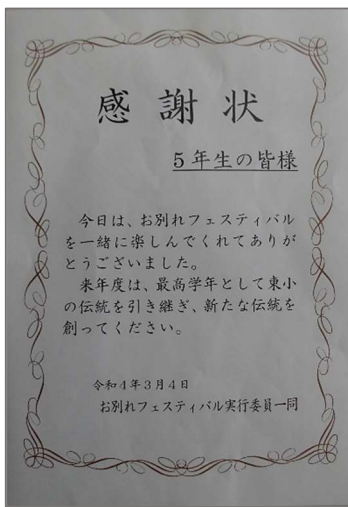 感謝状
5年生の皆様
今日は、お別れフェスティバル
を一緒に楽しんでくれてありが
とうございました。
来年度は、最高学年として東小
の伝統を引き継ぎ、新たな伝統を
創ってください。
令和4年3月4日
お別れフェスティバル実行委員一同